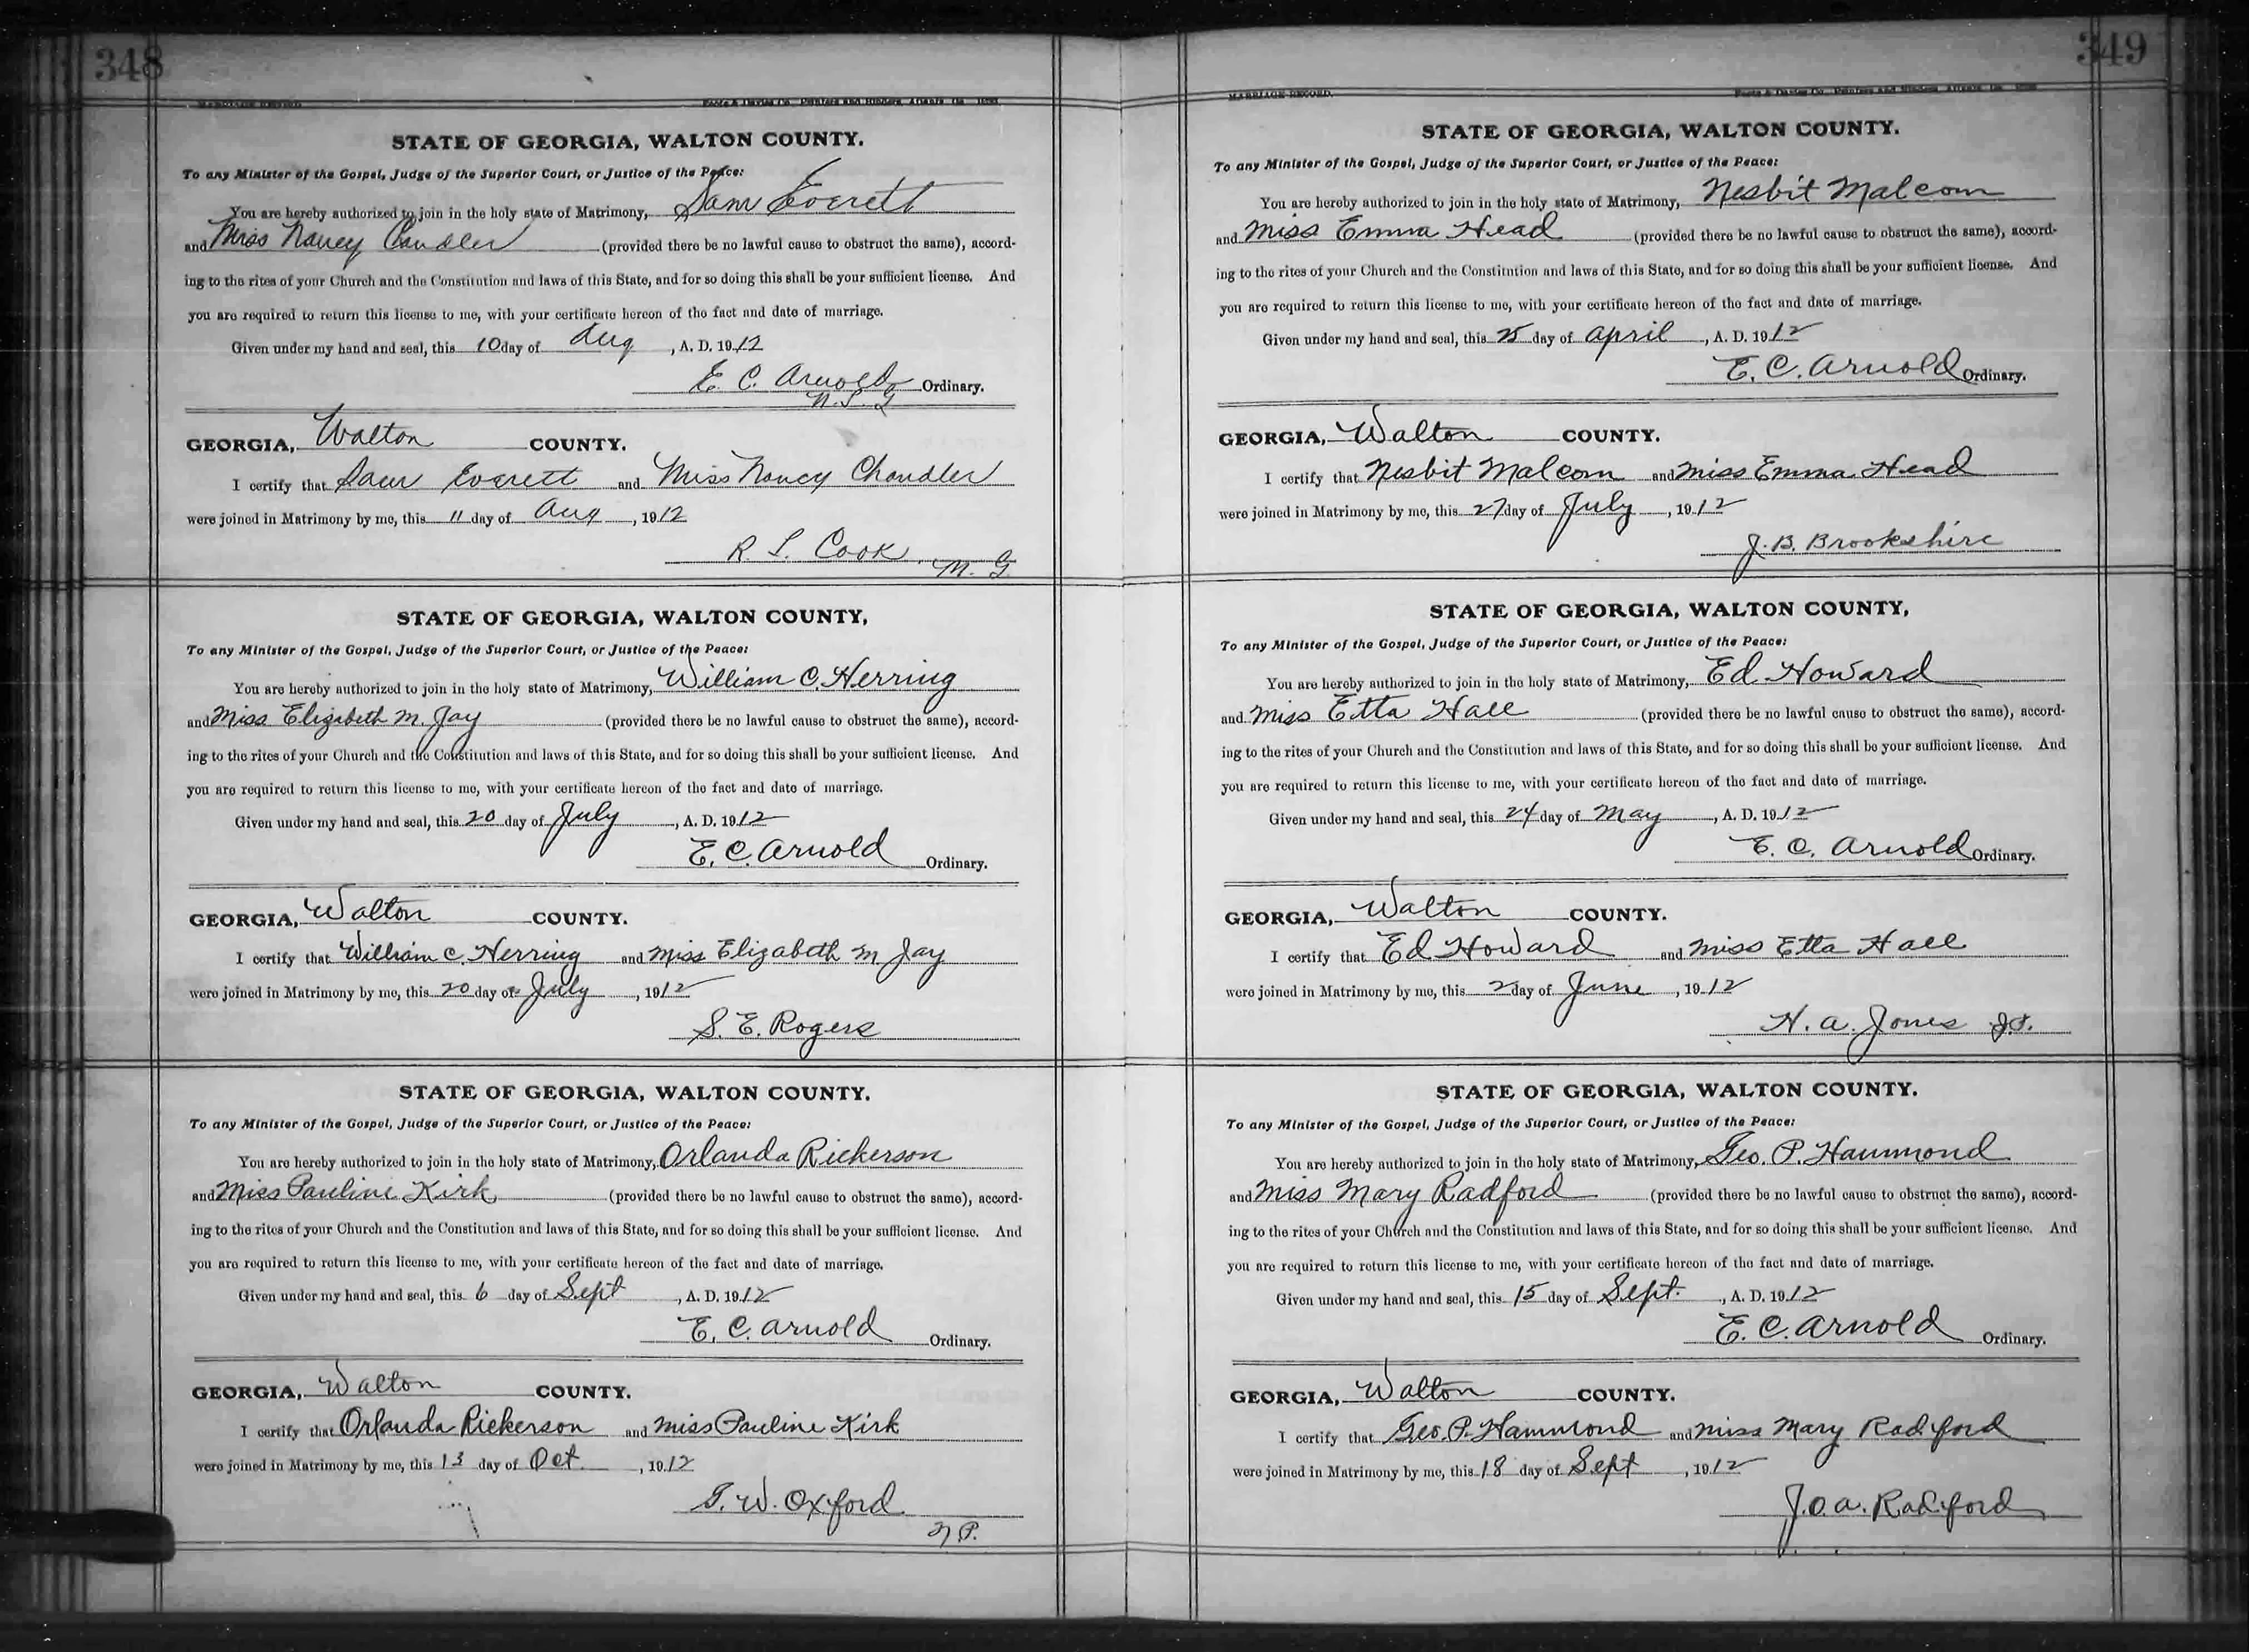 348
MARRIAGE RECORD.
Foote & Davies Co., Printers and Binders, Atlanta, Ga.
STATE OF GEORGIA, WALTON COUNTY.
To any Minister of the Gospel, Judge of the Superior Court, or Justice of the Peace:
You are hereby authorized to join in the holy state of Matrimony, Sam Everett
and Miss Nancy Candler (provided there be no lawful cause to obstruct the same), accord-
ing to the rites of your Church and the Constitution and laws of this State, and for so doing this shall be your sufficient license. And
you are required to return this license to me, with your certificate hereon of the fact and date of marriage.
Given under my hand and seal, this 10 day of Aug, A. D. 1912
E. C. Arnold Ordinary.
GEORGIA, Walton COUNTY.
I certify that Sam Everett and Miss Nancy Chandler
were joined in Matrimony by me, this 11 day of Aug, 1912
R. L. Cook
M. G.
STATE OF GEORGIA, WALTON COUNTY,
To any Minister of the Gospel, Judge of the Superior Court, or Justice of the Peace:
You are hereby authorized to join in the holy state of Matrimony, William C. Herring
and Miss Elizabeth M. Jay (provided there be no lawful cause to obstruct the same), accord-
ing to the rites of your Church and the Constitution and laws of this State, and for so doing this shall be your sufficient license. And
you are required to return this license to me, with your certificate hereon of the fact and date of marriage.
Given under my hand and seal, this 20 day of July, A. D. 1912
E. C. Arnold Ordinary.
GEORGIA, Walton COUNTY.
I certify that William C. Herring and Miss Elizabeth M Jay
were joined in Matrimony by me, this 20 day of July, 1912
S. E. Rogers
STATE OF GEORGIA, WALTON COUNTY.
To any Minister of the Gospel, Judge of the Superior Court, or Justice of the Peace:
You are hereby authorized to join in the holy state of Matrimony, Orlanda Rickerson
and Miss Pauline Kirk (provided there be no lawful cause to obstruct the same), accord-
ing to the rites of your Church and the Constitution and laws of this State, and for so doing this shall be your sufficient license. And
you are required to return this license to me, with your certificate hereon of the fact and date of marriage.
Given under my hand and seal, this 6 day of Sept, A. D. 1912
E. C. Arnold Ordinary.
GEORGIA, Walton COUNTY.
I certify that Orlanda Rickerson and Miss Pauline Kirk
were joined in Matrimony by me, this 13 day of Oct., 1912
G. W. Oxford
N P.
349
MARRIAGE RECORD.
Foote & Davies Co., Printers and Binders, Atlanta, Ga.
STATE OF GEORGIA, WALTON COUNTY.
To any Minister of the Gospel, Judge of the Superior Court, or Justice of the Peace:
You are hereby authorized to join in the holy state of Matrimony, Nesbit Malcom
and Miss Emma Head (provided there be no lawful cause to obstruct the same), accord-
ing to the rites of your Church and the Constitution and laws of this State, and for so doing this shall be your sufficient license. And
you are required to return this license to me, with your certificate hereon of the fact and date of marriage.
Given under my hand and seal, this 25 day of April, A. D. 1912
E. C. Arnold Ordinary.
GEORGIA, Walton COUNTY.
I certify that Nesbit Malcom and Miss Emma Head
were joined in Matrimony by me, this 27 day of July, 1912
J. B. Brookshire
STATE OF GEORGIA, WALTON COUNTY,
To any Minister of the Gospel, Judge of the Superior Court, or Justice of the Peace:
You are hereby authorized to join in the holy state of Matrimony, Ed Howard
and Miss Etta Hall (provided there be no lawful cause to obstruct the same), accord-
ing to the rites of your Church and the Constitution and laws of this State, and for so doing this shall be your sufficient license. And
you are required to return this license to me, with your certificate hereon of the fact and date of marriage.
Given under my hand and seal, this 24 day of May, A. D. 1912
E. C. Arnold Ordinary.
GEORGIA, Walton COUNTY.
I certify that Ed Howard and Miss Etta Hall
were joined in Matrimony by me, this 2 day of June, 1912
H. A. Jones J.P.
STATE OF GEORGIA, WALTON COUNTY.
To any Minister of the Gospel, Judge of the Superior Court, or Justice of the Peace:
You are hereby authorized to join in the holy state of Matrimony, Geo. P. Hammond
and Miss Mary Radford (provided there be no lawful cause to obstruct the same), accord-
ing to the rites of your Church and the Constitution and laws of this State, and for so doing this shall be your sufficient license. And
you are required to return this license to me, with your certificate hereon of the fact and date of marriage.
Given under my hand and seal, this 15 day of Sept., A. D. 1912
E. C. Arnold Ordinary.
GEORGIA, Walton COUNTY.
I certify that Geo. P. Hammond and Miss Mary Radford
were joined in Matrimony by me, this 18 day of Sept, 1912
J. O. A. Radford